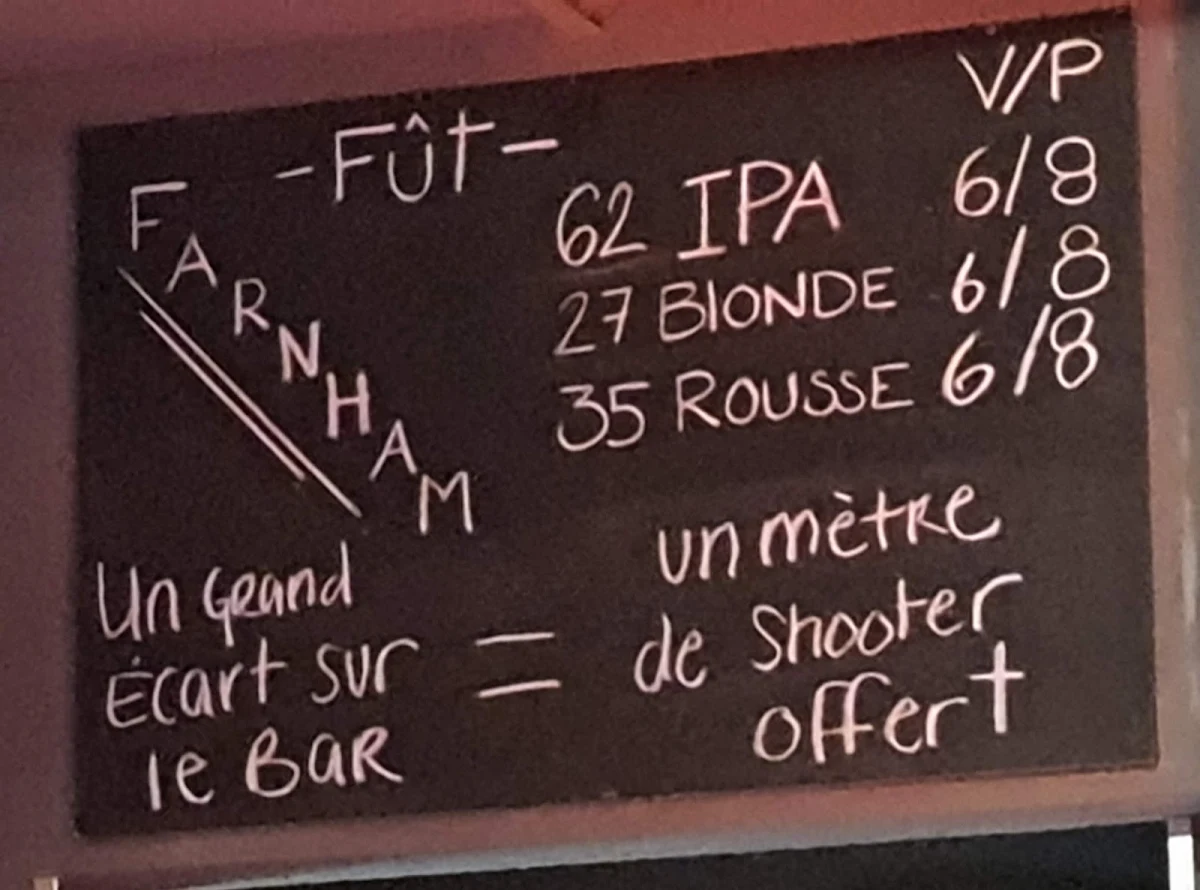 V/P
-Fût-
FARNHAM
62 IPA 6/8
27 BLONDE 6/8
35 ROUSSE 6/8
Un Grand
Écart sur
le BAR
=
un mètre
de Shooter
offert